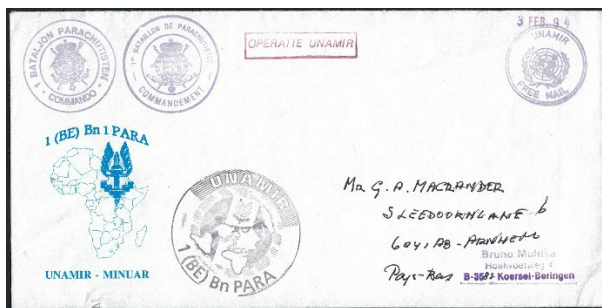 1 BATALJON PARACHUTISTEN
- COMMANDO -
1er BATAILLON DE PARACHUTISTES
- COMMANDEMENT -
OPERATIE UNAMIR
3 FEB. 94
UNAMIR
FREE MAIL
1 (BE) Bn 1 PARA
UNAMIR - MINUAR
UNAMIR
1 (BE) Bn PARA
Mr G. A. MACRANDER
SLEEDOORNLANE 6
ARNHEM
Pays-Bas
Bruno
Hoekvoetweg 4
B-3582 Koersel-Beringen